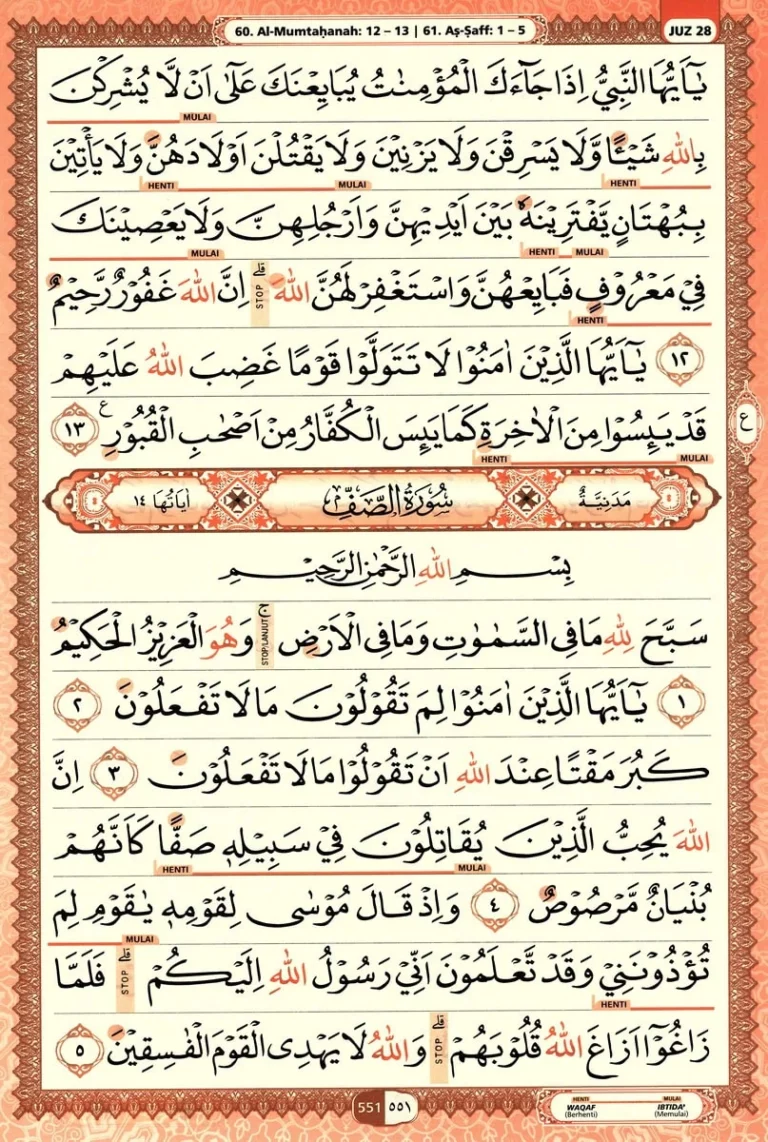 60. Al-Mumtaḥanah: 12 – 13 | 61. Aṣ-Ṣaff: 1 – 5
JUZ 28
يٰٓاَيُّهَا النَّبِيُّ اِذَا جَاۤءَكَ الْمُؤْمِنٰتُ يُبَايِعْنَكَ عَلٰٓى اَنْ لَّا يُشْرِكْنَ
MULAI
بِاللّٰهِ شَيْـًٔا وَّلَا يَسْرِقْنَ وَلَا يَزْنِيْنَ وَلَا يَقْتُلْنَ اَوْلَادَهُنَّ وَلَا يَأْتِيْنَ
HENTI MULAI HENTI
بِبُهْتَانٍ يَّفْتَرِيْنَهٗ بَيْنَ اَيْدِيْهِنَّ وَاَرْجُلِهِنَّ وَلَا يَعْصِيْنَكَ
MULAI HENTI MULAI
فِيْ مَعْرُوْفٍ فَبَايِعْهُنَّ وَاسْتَغْفِرْ لَهُنَّ اللّٰهَ ۗ اِنَّ اللّٰهَ غَفُوْرٌ رَّحِيْمٌ
STOP
HENTI
١٢ يٰٓاَيُّهَا الَّذِيْنَ اٰمَنُوْا لَا تَتَوَلَّوْا قَوْمًا غَضِبَ اللّٰهُ عَلَيْهِمْ
قَدْ يَىِٕسُوْا مِنَ الْاٰخِرَةِ كَمَا يَىِٕسَ الْكُفَّارُ مِنْ اَصْحٰبِ الْقُبُوْرِ ع ١٣
ع
HENTI MULAI
مَدَنِيَّةٌ سُوْرَةُ الصَّفِّ اٰيَاتُهَا ١٤
بِسْمِ اللّٰهِ الرَّحْمٰنِ الرَّحِيْمِ
سَبَّحَ لِلّٰهِ مَا فِى السَّمٰوٰتِ وَمَا فِى الْاَرْضِ ۚ وَهُوَ الْعَزِيْزُ الْحَكِيْمُ
STOP/LANJUT
١ يٰٓاَيُّهَا الَّذِيْنَ اٰمَنُوْا لِمَ تَقُوْلُوْنَ مَا لَا تَفْعَلُوْنَ ٢
كَبُرَ مَقْتًا عِنْدَ اللّٰهِ اَنْ تَقُوْلُوْا مَا لَا تَفْعَلُوْنَ ٣ اِنَّ
اللّٰهَ يُحِبُّ الَّذِيْنَ يُقَاتِلُوْنَ فِيْ سَبِيْلِهٖ صَفًّا كَاَنَّهُمْ
HENTI MULAI
بُنْيَانٌ مَّرْصُوْصٌ ٤ وَاِذْ قَالَ مُوْسٰى لِقَوْمِهٖ يٰقَوْمِ لِمَ
MULAI
تُؤْذُوْنَنِيْ وَقَدْ تَّعْلَمُوْنَ اَنِّيْ رَسُوْلُ اللّٰهِ اِلَيْكُمْ ۗ فَلَمَّا
STOP
HENTI
زَاغُوْٓا اَزَاغَ اللّٰهُ قُلُوْبَهُمْ ۗ وَاللّٰهُ لَا يَهْدِى الْقَوْمَ الْفٰسِقِيْنَ ٥
STOP
551 ٥٥١
HENTI MULAI
WAQAF IBTIDA'
(Berhenti) (Memulai)